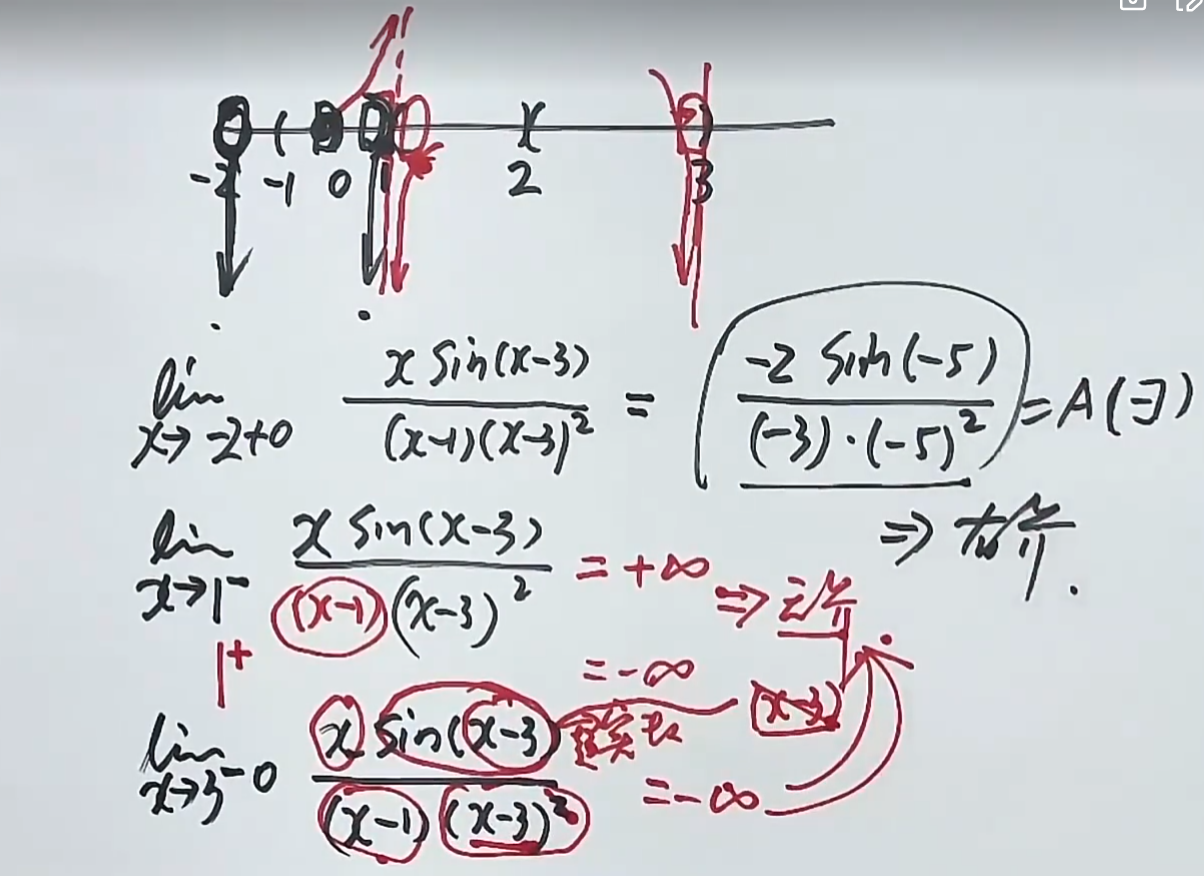 -2 -1 0 1 2 3
lim x→-2+0 x sin(x-3) / (x-1)(x-3)² = -2 sin(-5) / (-3)·(-5)² = A(∃)
⇒ 有界.
lim x→1⁻ x sin(x-3) / (x-1)(x-3)² = +∞ ⇒ 无界
1⁺ = -∞
(x-3)
lim x→3-0 x sin(x-3) / (x-1)(x-3)² = -∞